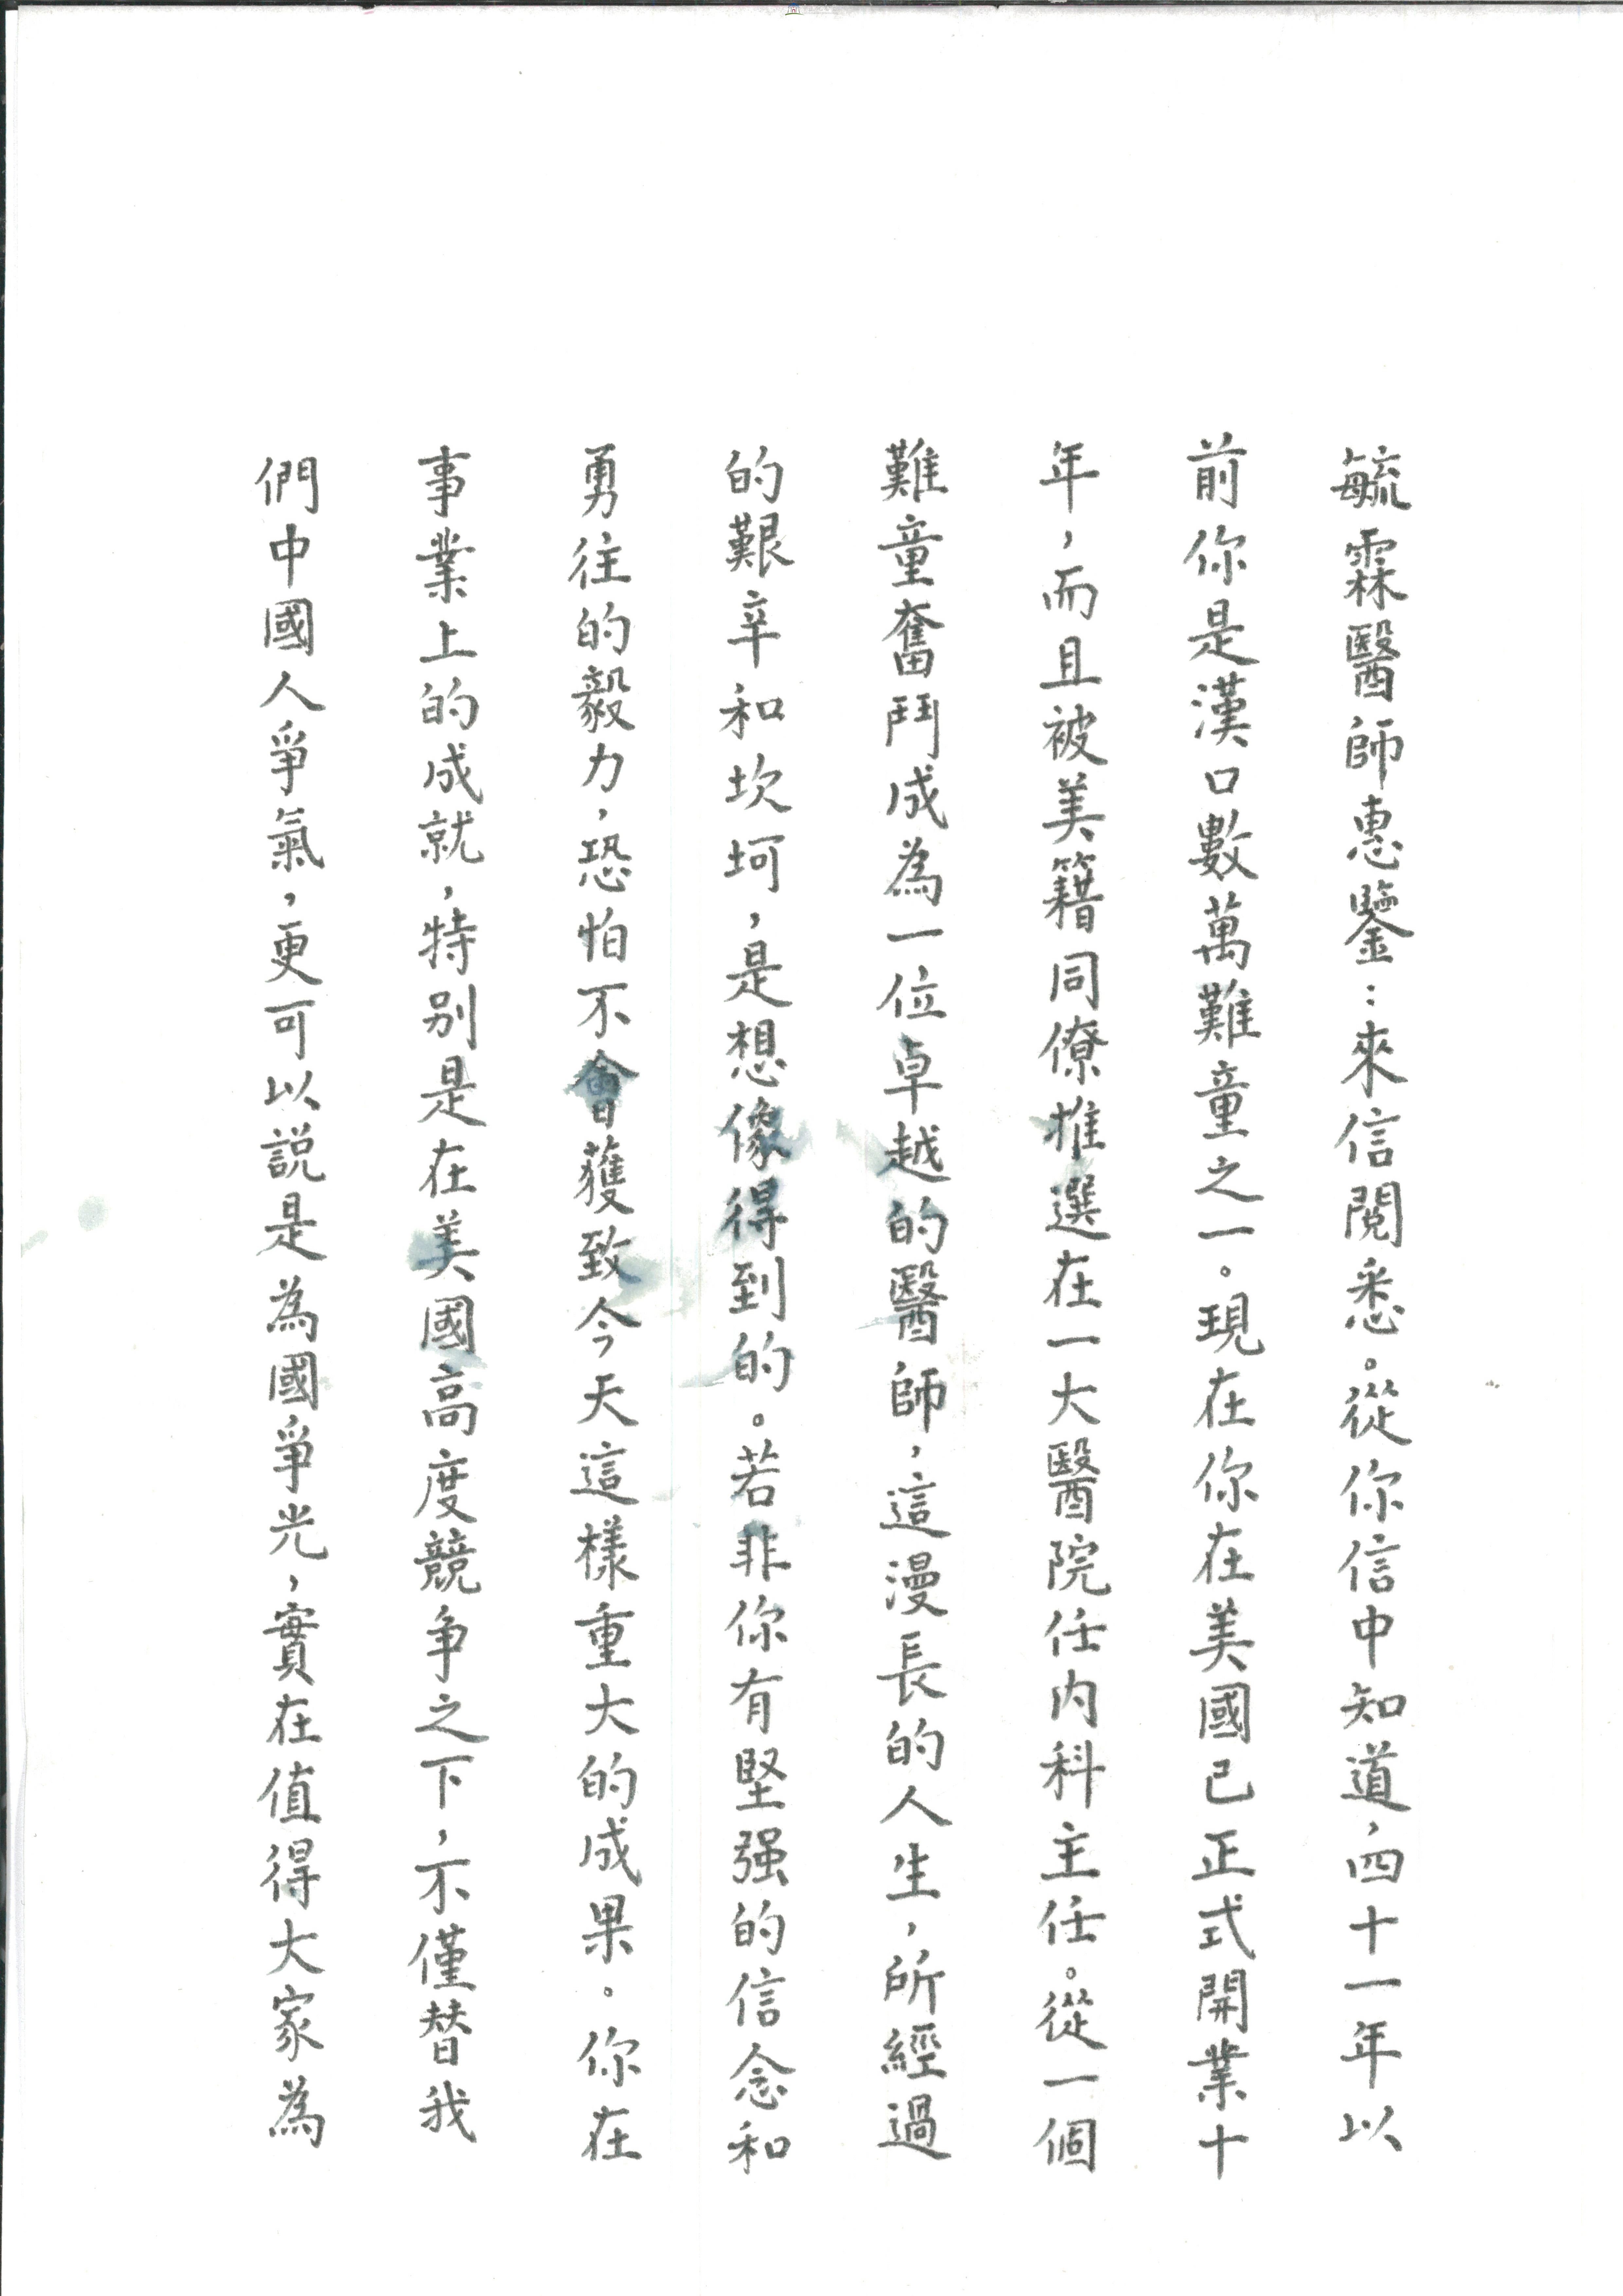 毓霖醫師惠鑒：來信閱悉。從你信中知道，四十一年以
前你是漢口數萬難童之一。現在你在美國已正式開業十
年，而且被美籍同僚推選在一大醫院任內科主任。從一個
難童奮鬥成為一位卓越的醫師，這漫長的人生，所經過
的艱辛和坎坷，是想像得到的。若非你有堅强的信念和
勇往的毅力，恐怕不會獲致今天這樣重大的成果。你在
事業上的成就，特別是在美國高度競争之下，不僅替我
們中國人爭氣，更可以説是為國爭光，實在值得大家為